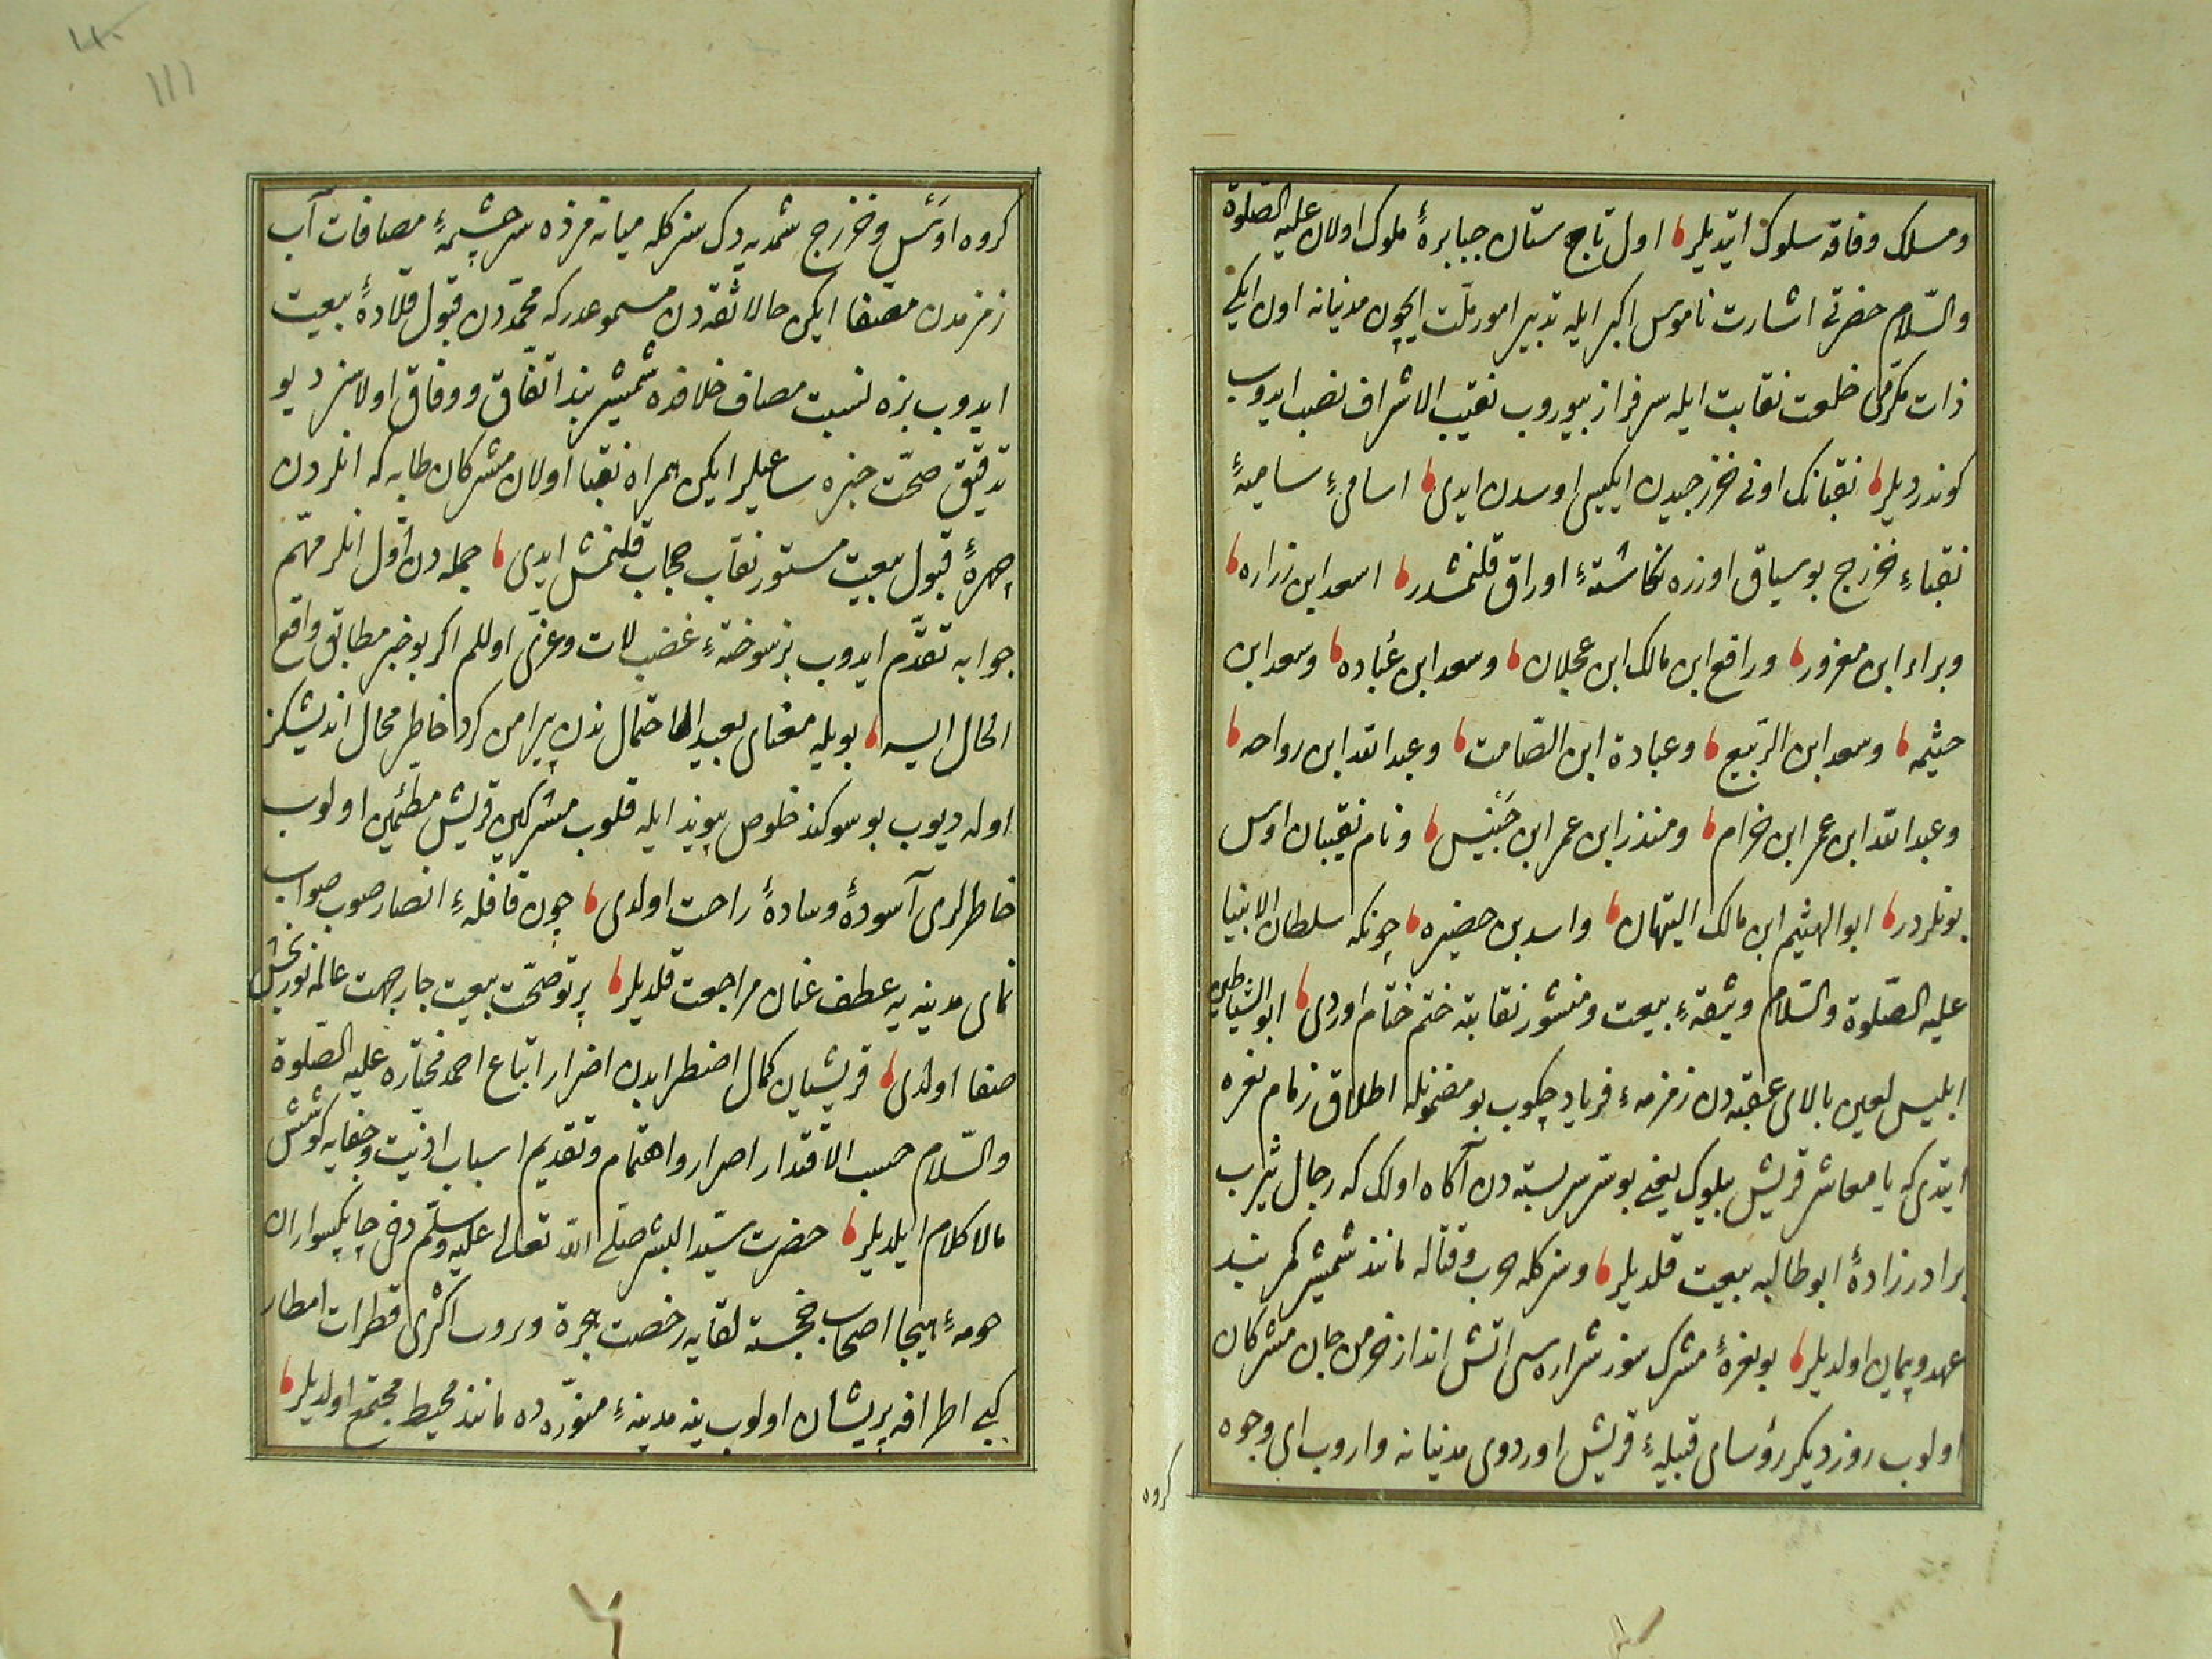 ومسلك وفاقه سلوك ايتديلر اول تاج ستان جبابرهٔ ملوك اولان عليه الصلوة
والسّلام حضرتى اشارت ناموس اكبر ايله تدبير امور ملّت ايچون مدنيانه اون ايكى
ذات مكرمى خلعت نقابت ايله سرفراز بيوروب نقيب الاشراف نصب ايدوب
كوندرديلر نقبانك اونى خزرجيدن ايكيسى اوسدن ايدى اسامىء ساميهٔ
نقباء خزرج بو سياق اوزره نكاشتهء اوراق قلنمشدر اسعد ابن زراره
وبراء ابن معزور ورافع ابن مالك ابن عجلان وسعد ابن عُباده وسعد ابن
حيثمه وسعد ابن الرّبيع وعبادة ابن الصّامت وعبد الله ابن رواحه
وعبد الله ابن عمر ابن خرام ومنذر ابن عمر ابن خَنيس ونام نقيبان اوس
بونلردر ابو الهيثم ابن مالك التيهان واسد بن حضيره چونكه سلطان الانبيا
عليه الصّلوة والسّلام وثيقهء بيعت ومنشور نقابته ختم ختام اوردى ابو الشياطين
ابليس لعين بالاى عقبه دن زمزمهء فرياد چكوب بو مضمونله اطلاق زمام نعره
ايتدى كه يا معاشر قريش بيلوك يعنى بو سر سربسته دن آكاه اولك كه رجال يثرب
برادر زادهٔ ابو طالبه بيعت قلديلر وسزكله حرب وقتاله مانند شمشير كمر بند
عهد وپيمان اولديلر بو نعرهٔ مشرك سوز شراره سى اتش انداز خرمن جان مشركان
اولوب روز ديكر رؤساى قبيلهء قريش اوردوى مدنيانه واروب اى وجوه
كروه
كروه اوَس وخزرج شمديه دك سزكله ميانه مزده سرچشمهٔ مصافات آب
زمزمدن مصفا ايكن حالا ثقه دن مسموعدر كه محمّدن قبول قلادهٔ بيعت
ايدوب بزه نسبت مصاف خلافده شمشير بند اتّفاق ووفاق اولاسز ديو
تدقيق صحّت خبره ساعيلر ايكن همراه نقبا اولان مشركان طابه كه انلردن
چهرهٔ قبول بيعت مستور نقاب حجاب قلنمش ايدى جمله دن اوّل انلر مهّم
جوابه تقدّم ايدوب بز سوختهء غضب لات وعزّى اوللم اكر بو خبر مطابق واقع
الحال ايسه بويله معناى بعيد الاحتمال ندن پيرامن كرد خاطر محال انديشكز
اوله ديوب بو سوكند خلوص پيوند ايله قلوب مشركين قريش مطئمين اولوب
خاطرلرى آسودهٔ وسادهٔ راحت اولدى چون قافلهء انصار صوب صواب
نماى مدينه يه عطف عنان مراجعت قلديلر پرتو صحّت بيعت چار جهت عالمه نور بخش
صفا اولدى قريشيان كمال اضطرابدن اضرار اتباع احمد مختاره عليه الصّلوة
والسّلام حسب الاقتدار اصرار واهتمام وتقديم اسباب اذيّت وجفايه كوشش
مالا كلام ايلديلر حضرت سيّد البشر صلّى الله تعالى عليه وسلّم دخى چابكسواران
حومهٔ هيجا اصحاب خجسته لقايه رخصت هجرة ويروب اكثرى قطرات امطار
كبى اطرافه پريشان اولوب ينه مدينهء منوّره ده مانند محيط مجتمع اولديلر